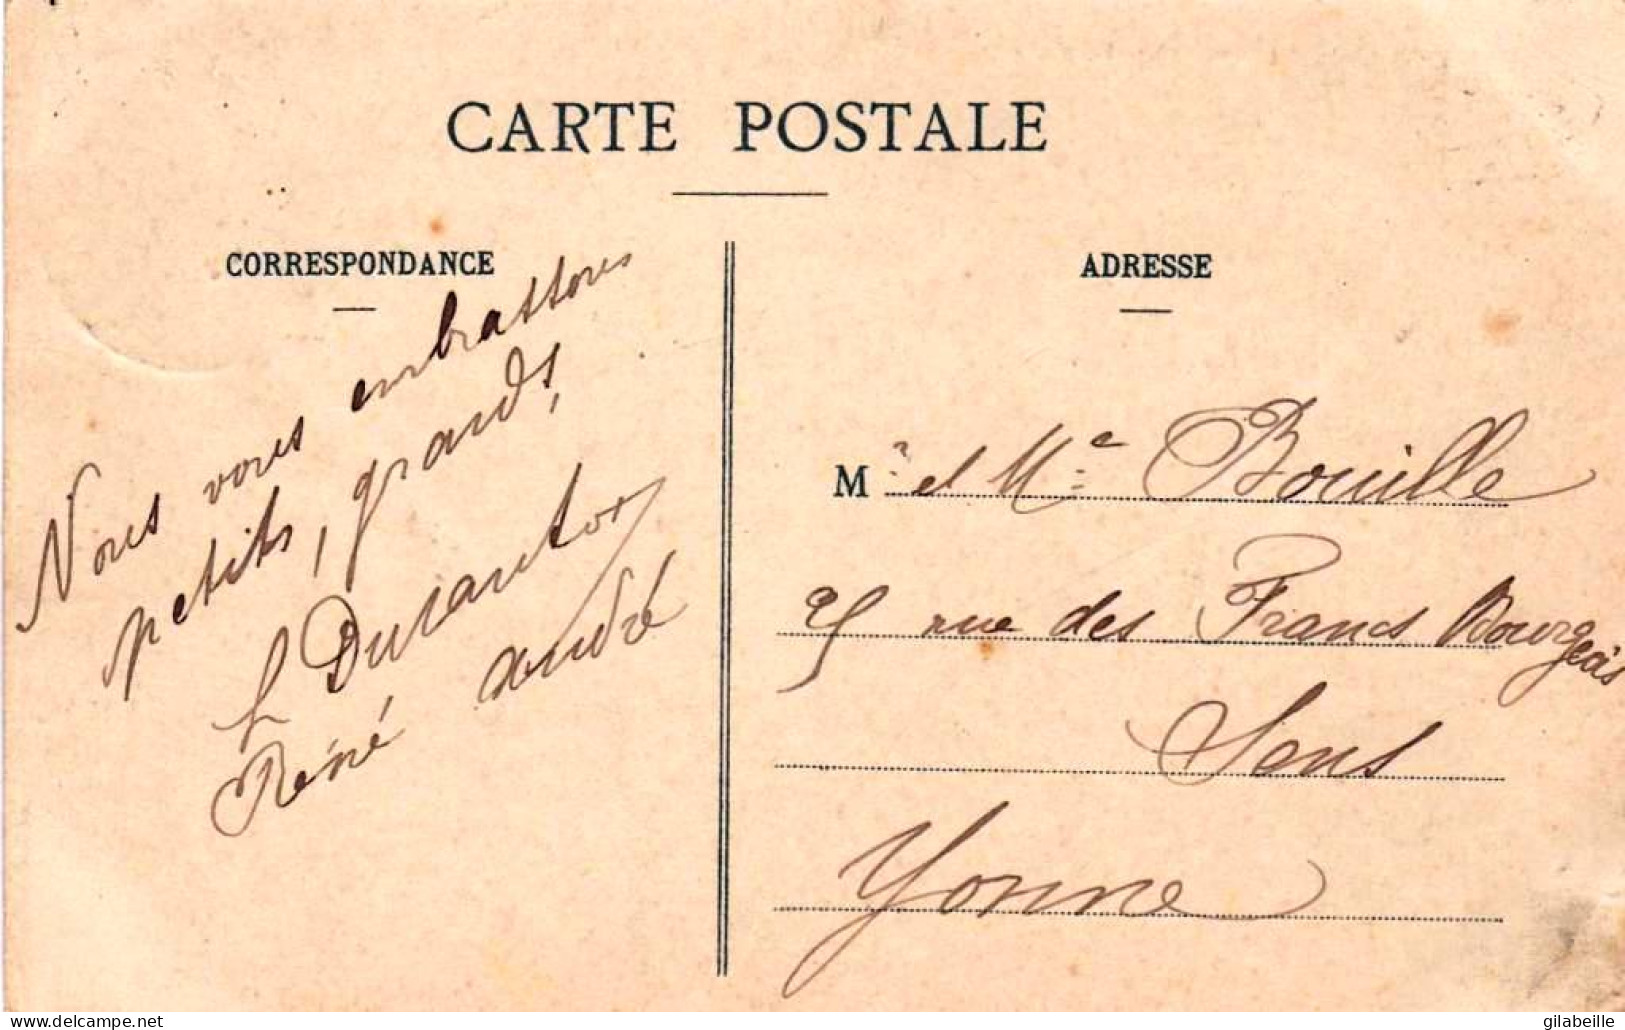 CARTE POSTALE
CORRESPONDANCE
Nous vous embrassons
petits, grands,
René André
ADRESSE
M r et Me Bouille
rue des Francs Bourgeois
Sens
Yonne
www.delcampe.net
gilabeille